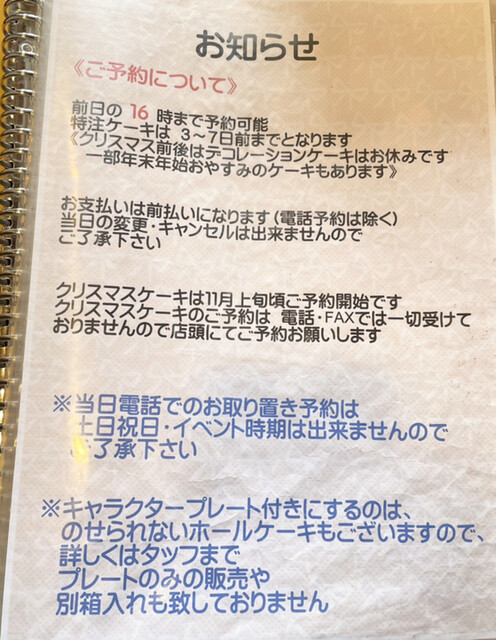 お知らせ
《ご予約について》
前日の 16 時まで予約可能
特注ケーキは 3〜7日前までとなります
《クリスマス前後はデコレーションケーキはお休みです
一部年末年始おやすみのケーキもあります》
お支払いは前払いになります(電話予約は除く)
当日の変更・キャンセルは出来ませんので
ご了承下さい
クリスマスケーキは11月上旬頃ご予約開始です
クリスマスケーキのご予約は 電話・FAXでは一切受けて
おりませんので店頭にてご予約お願いします
※当日電話でのお取り置き予約は
土日祝日・イベント時期は出来ませんので
ご了承下さい
※キャラクタープレート付きにするのは、
のせられないホールケーキもございますので、
詳しくはタッフまで
プレートのみの販売や
別箱入れも致しておりません